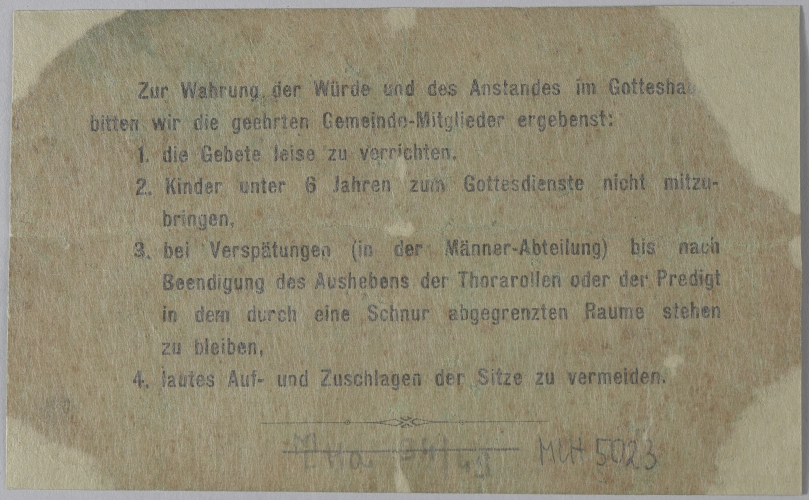 Zur Wahrung der Würde und des Anstandes im Gottesha
bitten wir die geehrten Gemeinde-Mitglieder ergebenst:
1. die Gebete leise zu verrichten,
2. Kinder unter 6 Jahren zum Gottesdienste nicht mitzu-
bringen,
3. bei Verspätungen (in der Männer-Abteilung) bis nach
Beendigung des Aushebens der Thorarollen oder der Predigt
in dem durch eine Schnur abgegrenzten Raume stehen
zu bleiben,
4. lautes Auf- und Zuschlagen der Sitze zu vermeiden.
5023